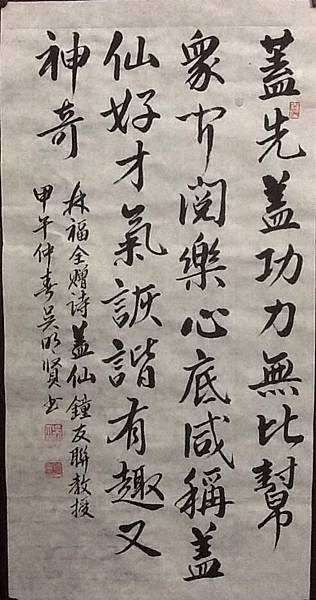 蓋先盖功力無比幫
眾閱樂心底咸稱盖
仙好才氣詼諧有趣又
神奇
林福全贈詩盖仙鐘友聯教授
甲午仲春吳明賢书